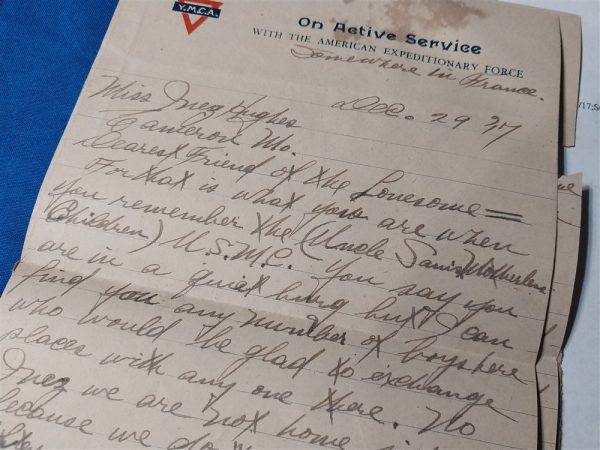 Y.M.C.A.
On Active Service
WITH THE AMERICAN EXPEDITIONARY FORCE
Somewhere in France.
Dec. 29
Miss Inez Hughes
Cameron Mo.
Dearest Friend of the Lonesome=
For that is what you are when
you remember the (Uncle Sam's Motherless
Children) U.S.M.C. You say you
are in a quiet burg but I can
find you any number of boys here
who would be glad to exchange
places with any one there. No
Inez we are not home
because we do